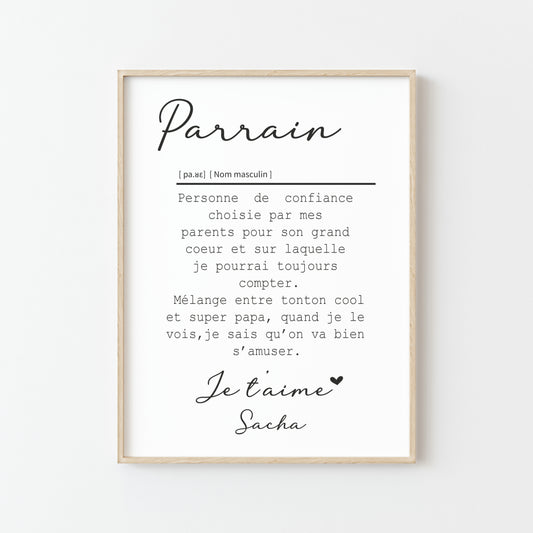 Parrain
[ pa.ʁɛ] [ Nom masculin ]
Personne de confiance
choisie par mes
parents pour son grand
coeur et sur laquelle
je pourrai toujours
compter.
Mélange entre tonton cool
et super papa, quand je le
vois,je sais qu’on va bien
s’amuser.
Je t'aime
Sacha